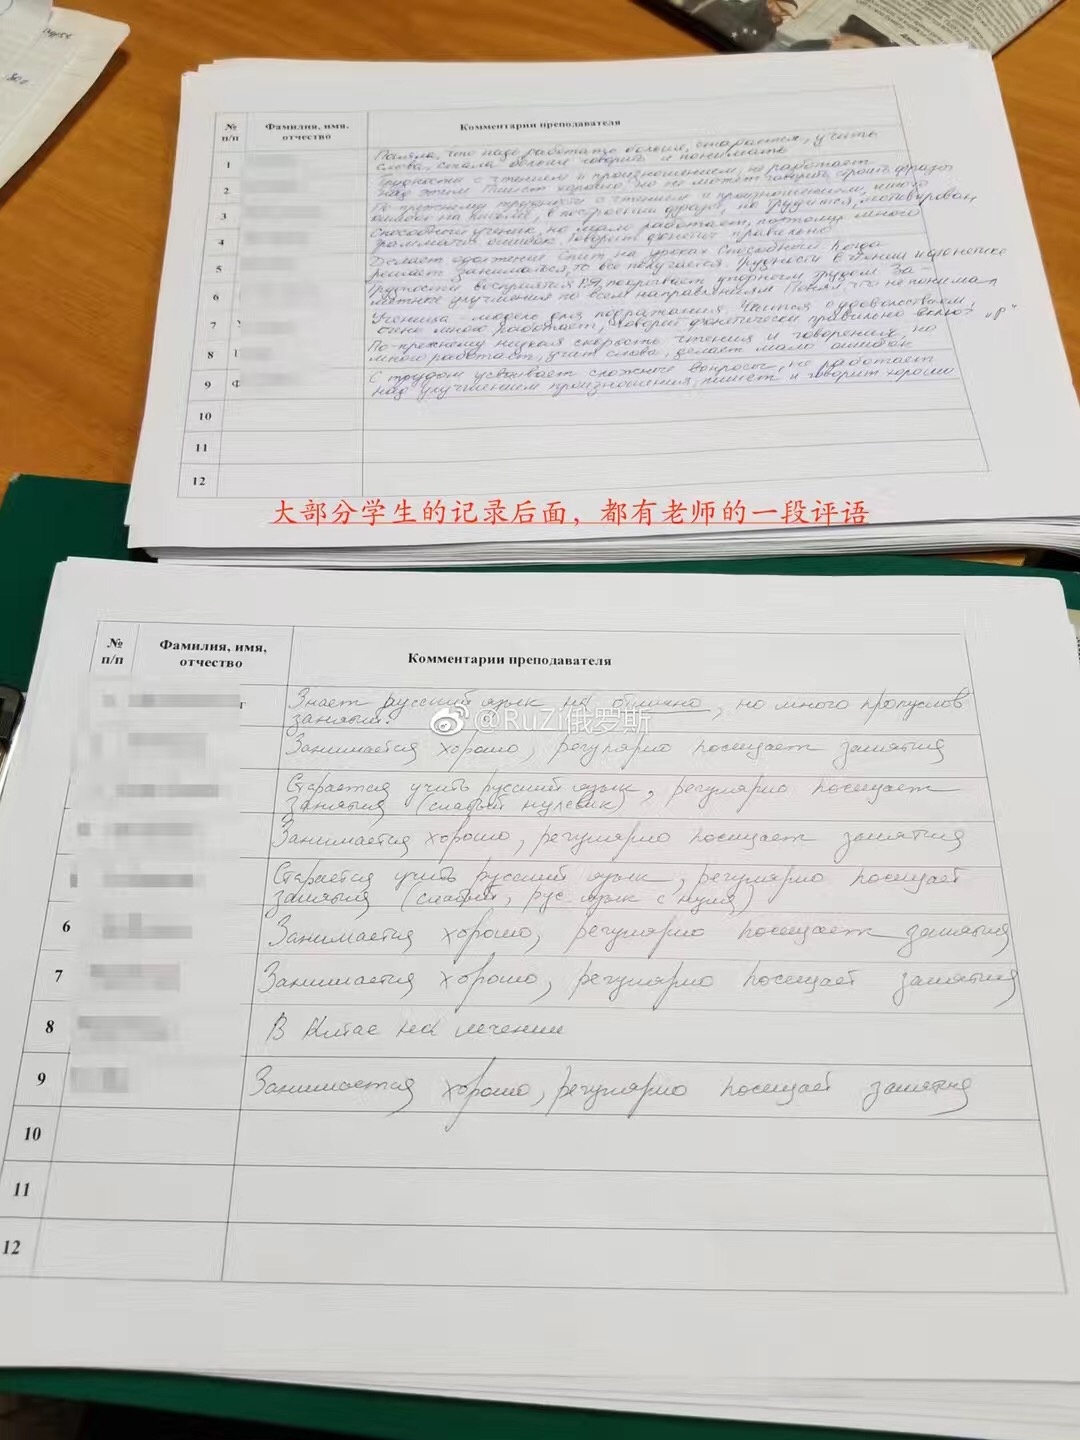 № п/п
Фамилия, имя, отчество
Комментарии преподавателя
1
Поняла, что надо работать больше, старается, учить
слова, стала больше говорить и понимать
2
Трудности с чтением и произношением, не работает
над этим. Пишет хорошо, но не может говорить, строить фразы
3
По-прежнему трудности с чтением и произношением, много
ошибок на письме, в построении фразы, но трудится, мотивирован
4
Способный ученик, но мало работает, поэтому много
граммат. ошибок. Говорит фонетич. правильно
5
Делает одолжение. Спит на уроках. Способный. Когда
решает заниматься, то все получается. Трудности в чтении и фонетике
6
Трудности восприятия РЯ подкрепляет упорным трудом. За-
метные улучшения по всем направлениям.
7
Ученица - модель для подражания. Учится с удовольствием,
очень много работает, говорит фонетически правильно "р"
8
По-прежнему низкая скорость чтения и говорения, но
много работает, учит слова, делает мало ошибок
9
Ф
С трудом усваивает сложные вопросы, не работает
над улучшением произношения, пишет и говорит хорошо
10
11
12
大部分学生的记录后面，都有老师的一段评语
№ п/п
Фамилия, имя, отчество
Комментарии преподавателя
Знает русский язык не блияно, но много пропусков
занятий.
@RuZi俄罗斯
Занимается хорошо, регулярно посещает занятия
Старается учить русский язык, регулярно посещает
занятия (слабый нулевик)
Занимается хорошо, регулярно посещает занятия
Старается учить русский язык, регулярно посещает
занятия (слабый, рус. язык с нуля)
6
Занимается хорошо, регулярно посещает занятия
7
Занимается хорошо, регулярно посещает занятия
8
В Китае на лечении
9
Занимается хорошо, регулярно посещает занятия
10
11
12